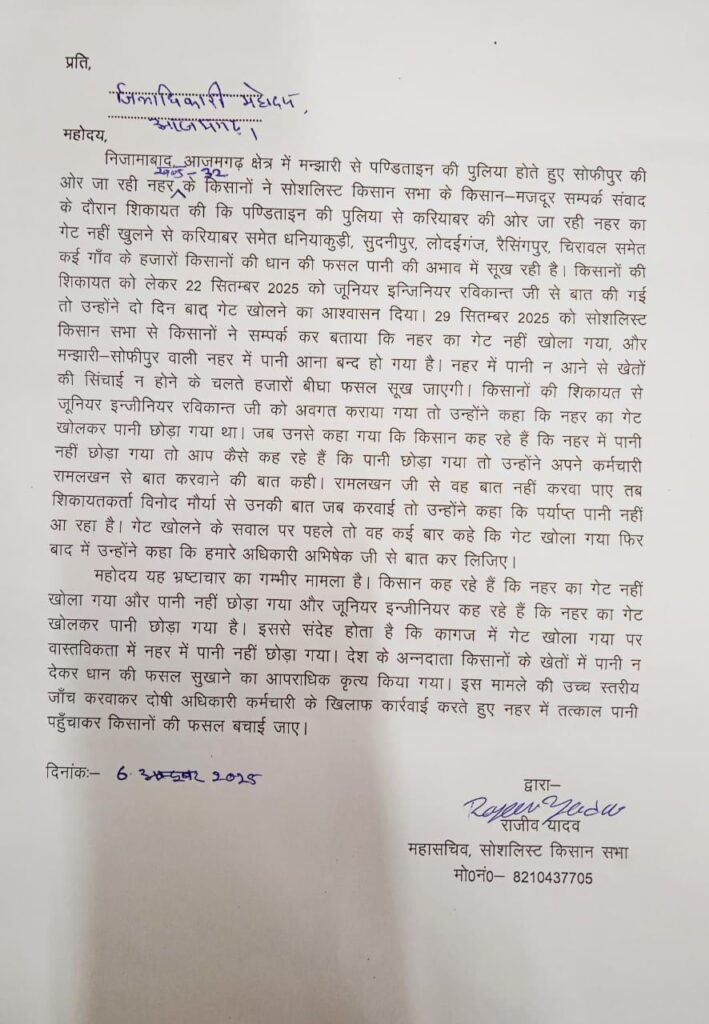 प्रति,
जिलाधिकारी महोदय,
आजमगढ़।
महोदय,
निजामाबाद, आजमगढ़ क्षेत्र में मन्झारी से पण्डिताइन की पुलिया होते हुए सोफीपुर की
ओर जा रही नहर के किसानों ने सोशलिस्ट किसान सभा के किसान–मजदूर सम्पर्क संवाद
के दौरान शिकायत की कि पण्डिताइन की पुलिया से करियाबर की ओर जा रही नहर का
गेट नहीं खुलने से करियाबर समेत धनियाकुड़ी, सुदनीपुर, लोदईगंज, रैसिंगपुर, चिरावल समेत
कई गाँव के हजारों किसानों की धान की फसल पानी की अभाव में सूख रही है। किसानों की
शिकायत को लेकर 22 सितम्बर 2025 को जूनियर इन्जिनियर रविकान्त जी से बात की गई
तो उन्होंने दो दिन बाद गेट खोलने का आश्वासन दिया। 29 सितम्बर 2025 को सोशलिस्ट
किसान सभा से किसानों ने सम्पर्क कर बताया कि नहर का गेट नहीं खोला गया, और
मन्झारी–सोफीपुर वाली नहर में पानी आना बन्द हो गया है। नहर में पानी न आने से खेतों
की सिंचाई न होने के चलते हजारों बीघा फसल सूख जाएगी। किसानों की शिकायत से
जूनियर इन्जीनियर रविकान्त जी को अवगत कराया गया तो उन्होंने कहा कि नहर का गेट
खोलकर पानी छोड़ा गया था। जब उनसे कहा गया कि किसान कह रहे हैं कि नहर में पानी
नहीं छोड़ा गया तो आप कैसे कह रहे हैं कि पानी छोड़ा गया तो उन्होंने अपने कर्मचारी
रामलखन से बात करवाने की बात कही। रामलखन जी से वह बात नहीं करवा पाए तब
शिकायतकर्ता विनोद मौर्या से उनकी बात जब करवाई तो उन्होंने कहा कि पर्याप्त पानी नहीं
आ रहा है। गेट खोलने के सवाल पर पहले तो वह कई बार कहे कि गेट खोला गया फिर
बाद में उन्होंने कहा कि हमारे अधिकारी अभिषेक जी से बात कर लिजिए।
महोदय यह भ्रष्टाचार का गम्भीर मामला है। किसान कह रहे हैं कि नहर का गेट नहीं
खोला गया और पानी नहीं छोड़ा गया और जूनियर इन्जीनियर कह रहे हैं कि नहर का गेट
खोलकर पानी छोड़ा गया है। इससे संदेह होता है कि कागज में गेट खोला गया पर
वास्तविकता में नहर में पानी नहीं छोड़ा गया। देश के अन्नदाता किसानों के खेतों में पानी न
देकर धान की फसल सुखाने का आपराधिक कृत्य किया गया। इस मामले की उच्च स्तरीय
जाँच करवाकर दोषी अधिकारी कर्मचारी के खिलाफ कार्रवाई करते हुए नहर में तत्काल पानी
पहुँचाकर किसानों की फसल बचाई जाए।
दिनांकः– 6 अक्टूबर 2025
द्वारा–
Rajeev Yadav
राजीव यादव
महासचिव, सोशलिस्ट किसान सभा
मो0नं0– 8210437705